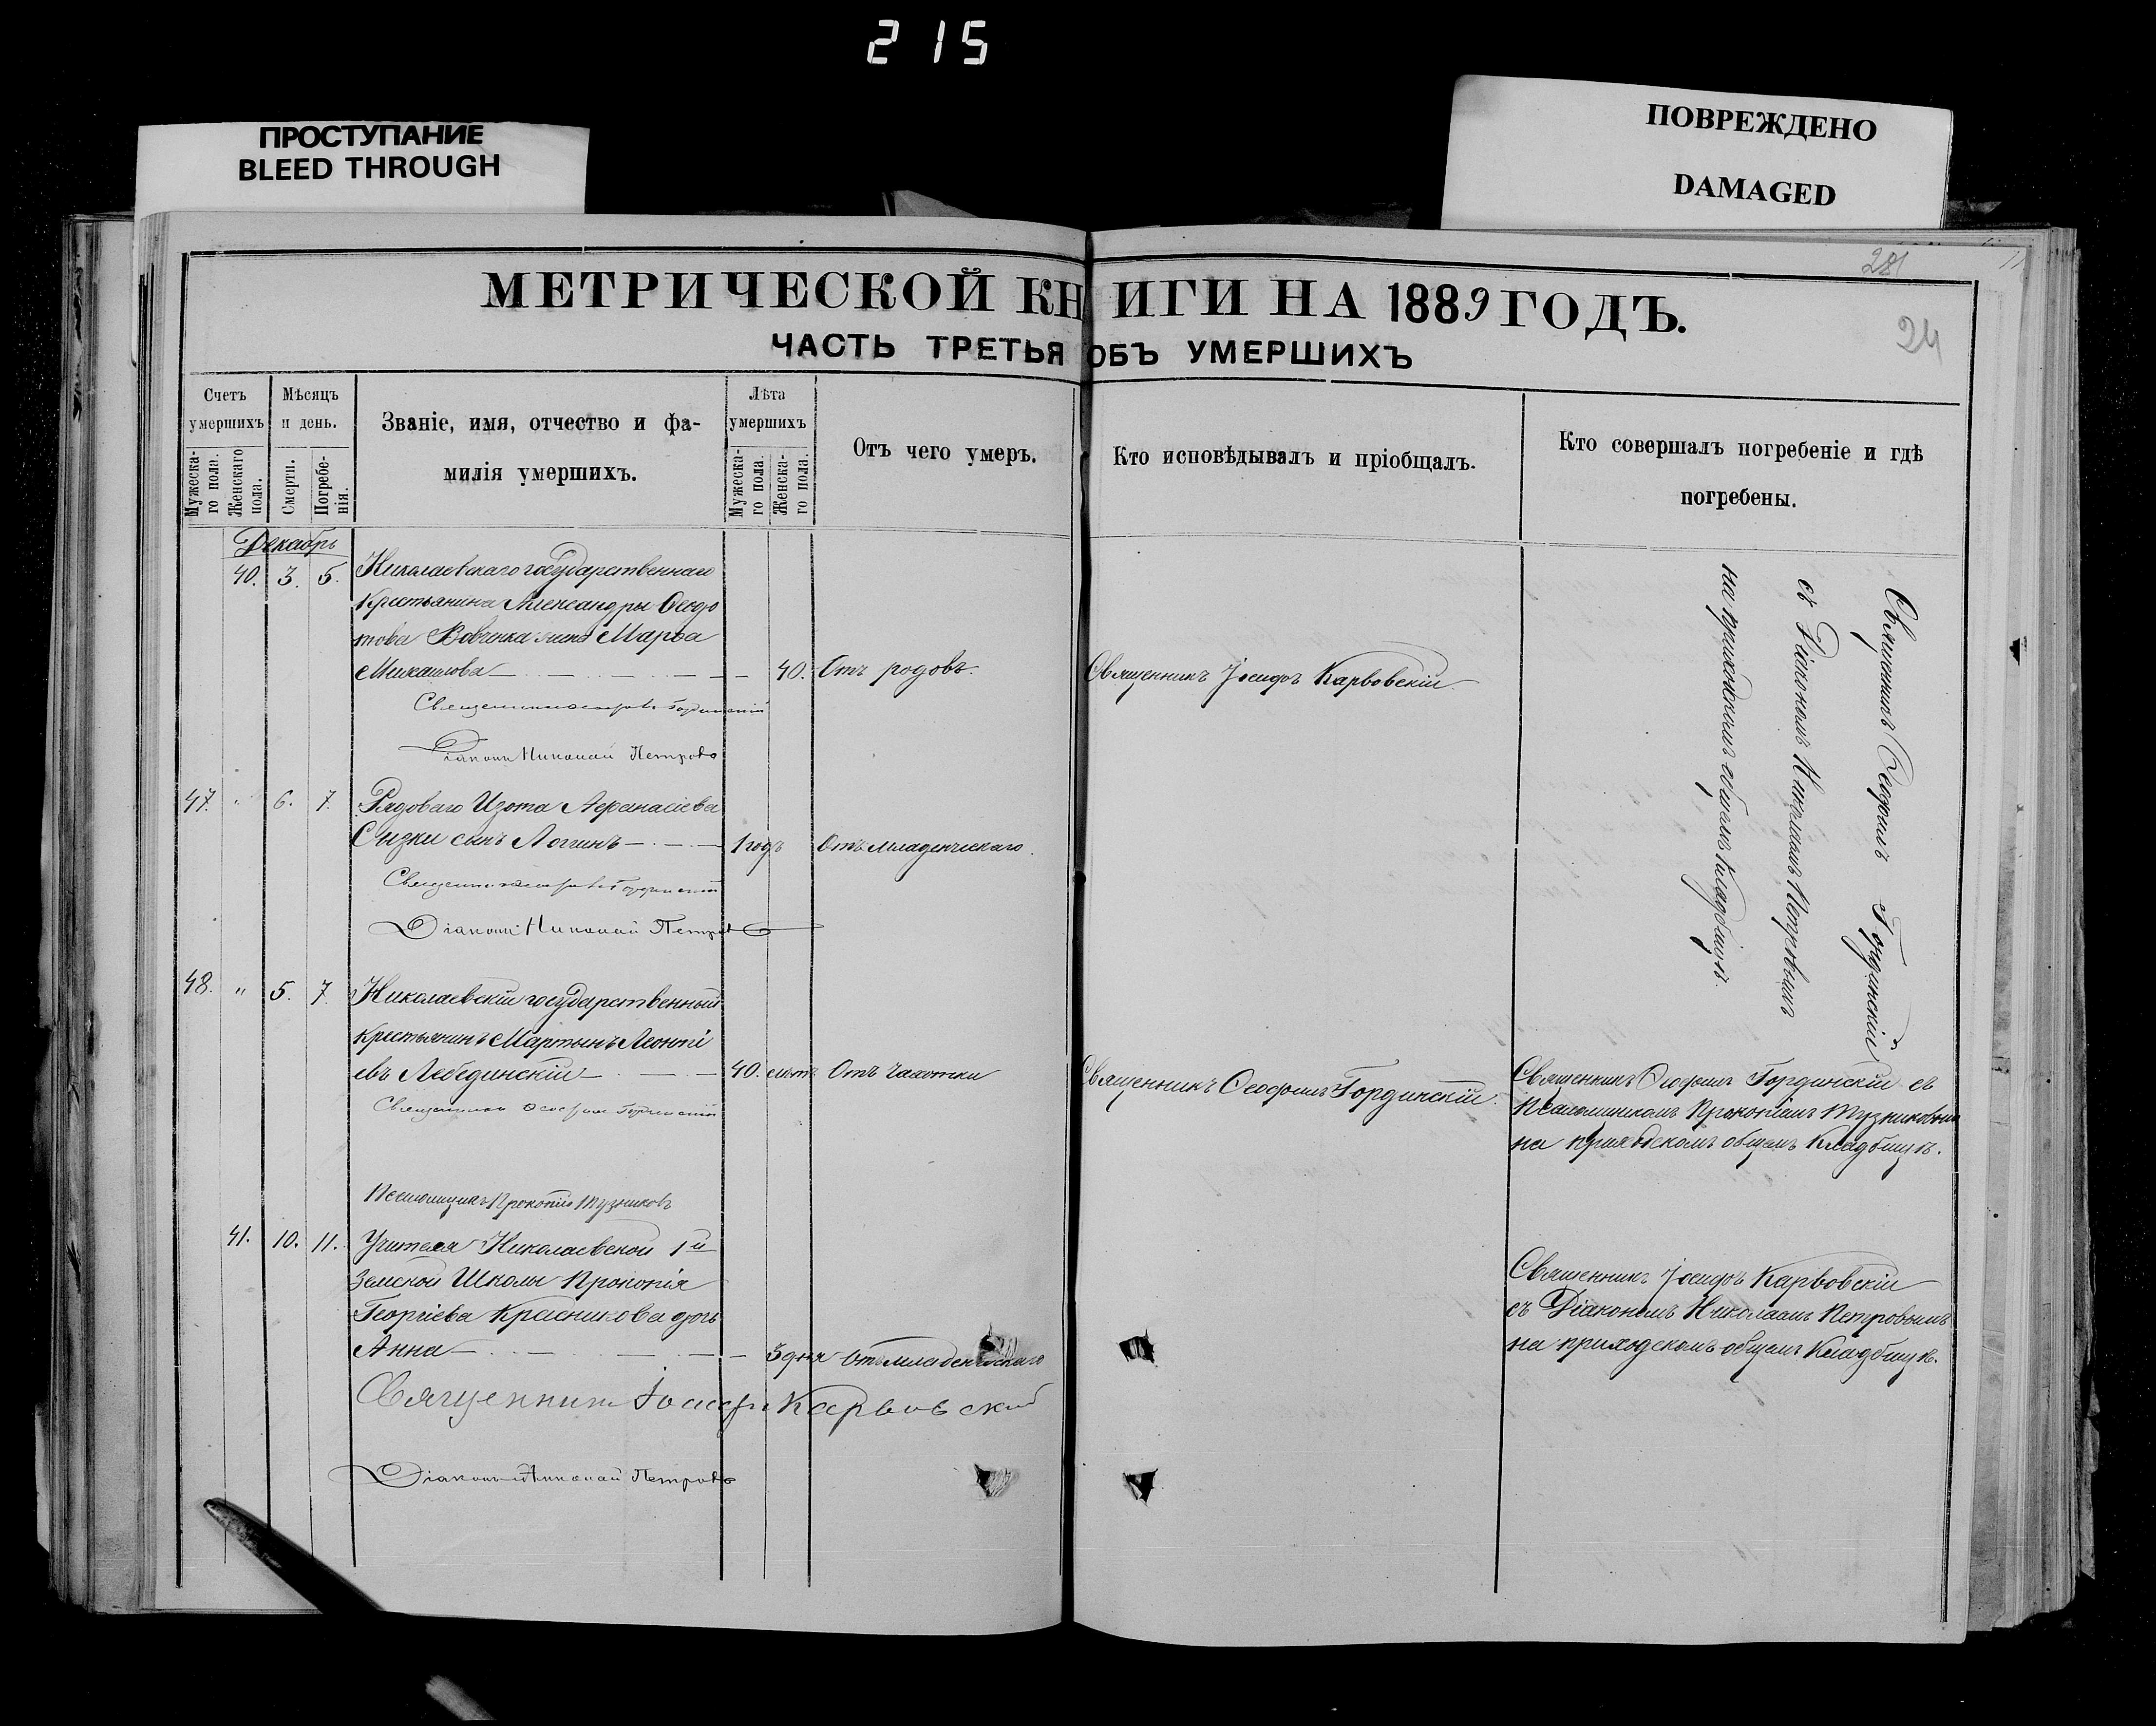 215
ПРОСТУПАНИЕ
BLEED THROUGH
ПОВРЕЖДЕНО
DAMAGED
281
24
МЕТРИЧЕСКОЙ КНИГИ НА 1889 ГОДЪ.
ЧАСТЬ ТРЕТЬЯ ОБЪ УМЕРШИХЪ
Счетъ умершихъ
Мужеска-го пола.
Женскаго пола.
Мѣсяцъ и день.
Смерти.
Погребе-нія.
Званіе, имя, отчество и фа-
милія умершихъ.
Лѣта умершихъ
Мужеска-го пола.
Женска-го пола.
Отъ чего умеръ.
Кто исповѣдывалъ и пріобщалъ.
Кто совершалъ погребеніе и гдѣ
погребены.
Декабрь
40. 3. 5. Николаевскаго государственнаго
крестьянина Александры Ѳеодо
това жена Марѳа
40. Отъ родовъ. Священникъ Іосифъ Карвовскій
Священникъ Ѳеофилъ Гординскій
Діаконъ Николай Петровъ
Священникъ Ѳеофилъ Гординскій
съ Діакономъ Николаемъ Петровымъ
на приходскомъ общемъ кладбищѣ.
47. " 6. 7. Рядоваго Изота Аѳанасіева
сынъ Логгинъ 1 годъ Отъ младенческаго
Священникъ Ѳеофилъ Гординскій
Діаконъ Николай Петровъ
48. " 5. 7. Николаевскій государственный
крестьянинъ Мартынъ Леонті
евъ Лебединскій 40. лѣтъ Отъ чахотки Священникъ Ѳеофилъ Гординскій
Священникъ Ѳеофилъ Гординскій
Псаломщикъ Прокопій Тузниковъ
Священникъ Ѳеофилъ Гординскій съ
Псаломщикомъ Прокопіемъ Тузниковымъ
на приходскомъ общемъ кладбищѣ.
41. 10. 11. Учителя Николаевской 1й
Земской Школы Прокопія
Георгіева Красникова дочь
Анна 3 дня Отъ младенческаго
Священникъ Іосифъ Карвовскій
съ Діакономъ Николаемъ Петровымъ
на приходскомъ общемъ кладбищѣ.
Священникъ Іосифъ Карвовскій
Діаконъ Николай Петровъ